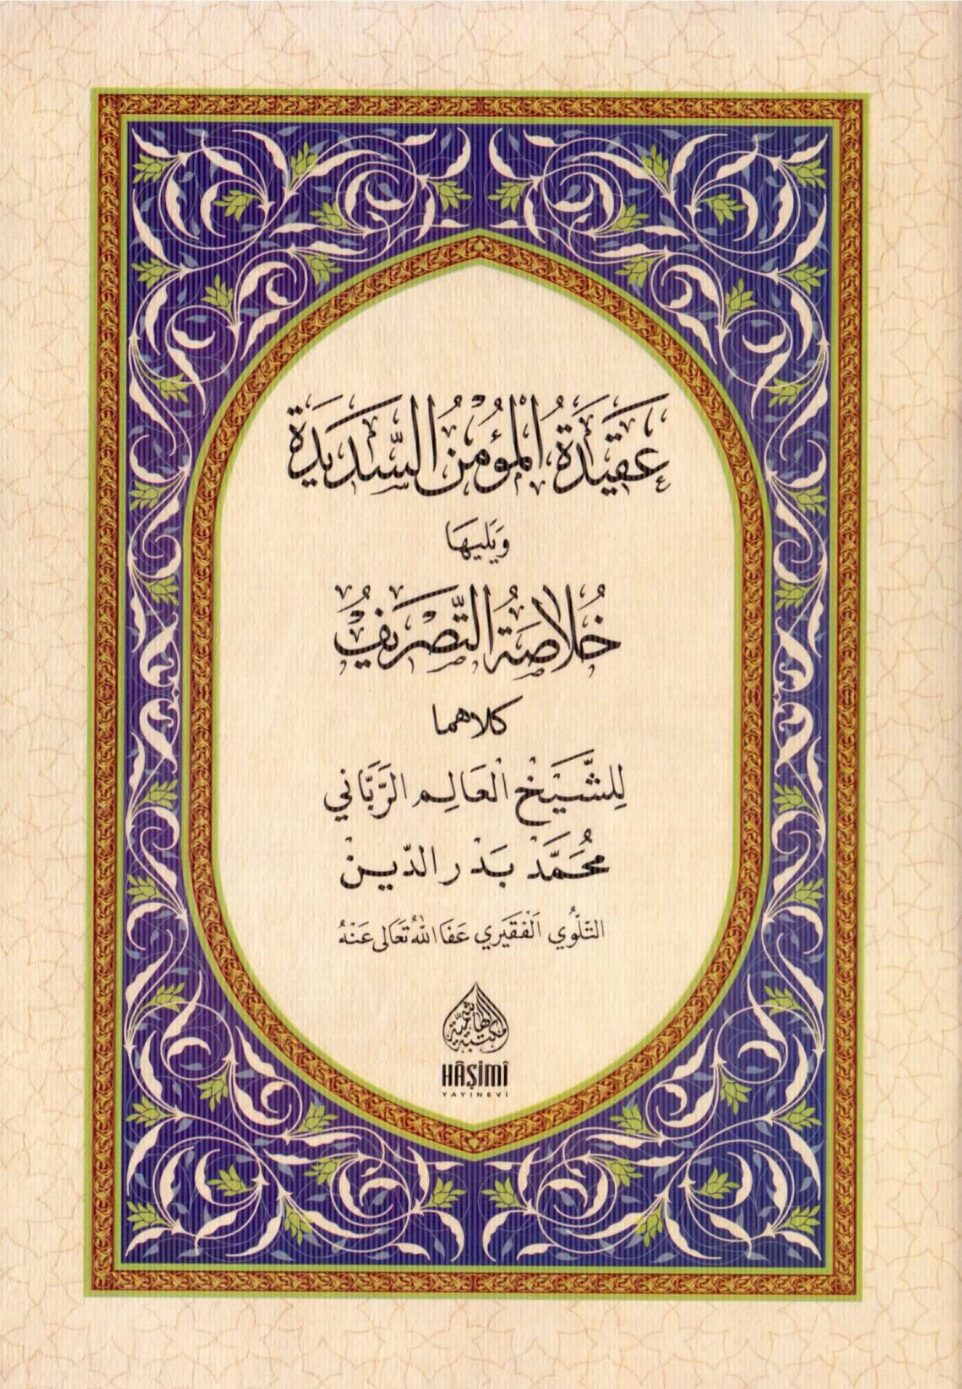 عَقِيْدَةُ الْمُؤْمِنِ السَّدِيْدَةُ
وَيَلِيْهَا
خُلَاصَةُ التَّصْرِيْفِ
كلاهما
لِلشَّيْخِ الْعَالِمِ الرَّبَّانِي
مُحَمَّدْ بَدْرِ الدِّيْنِ
التِّلُّوِي الْفَقِيْرِي عَفَا اللّٰهُ تَعَالَى عَنْهُ
مكتبة هاشمية
HÂŞİMÎ
YAYINEVİ